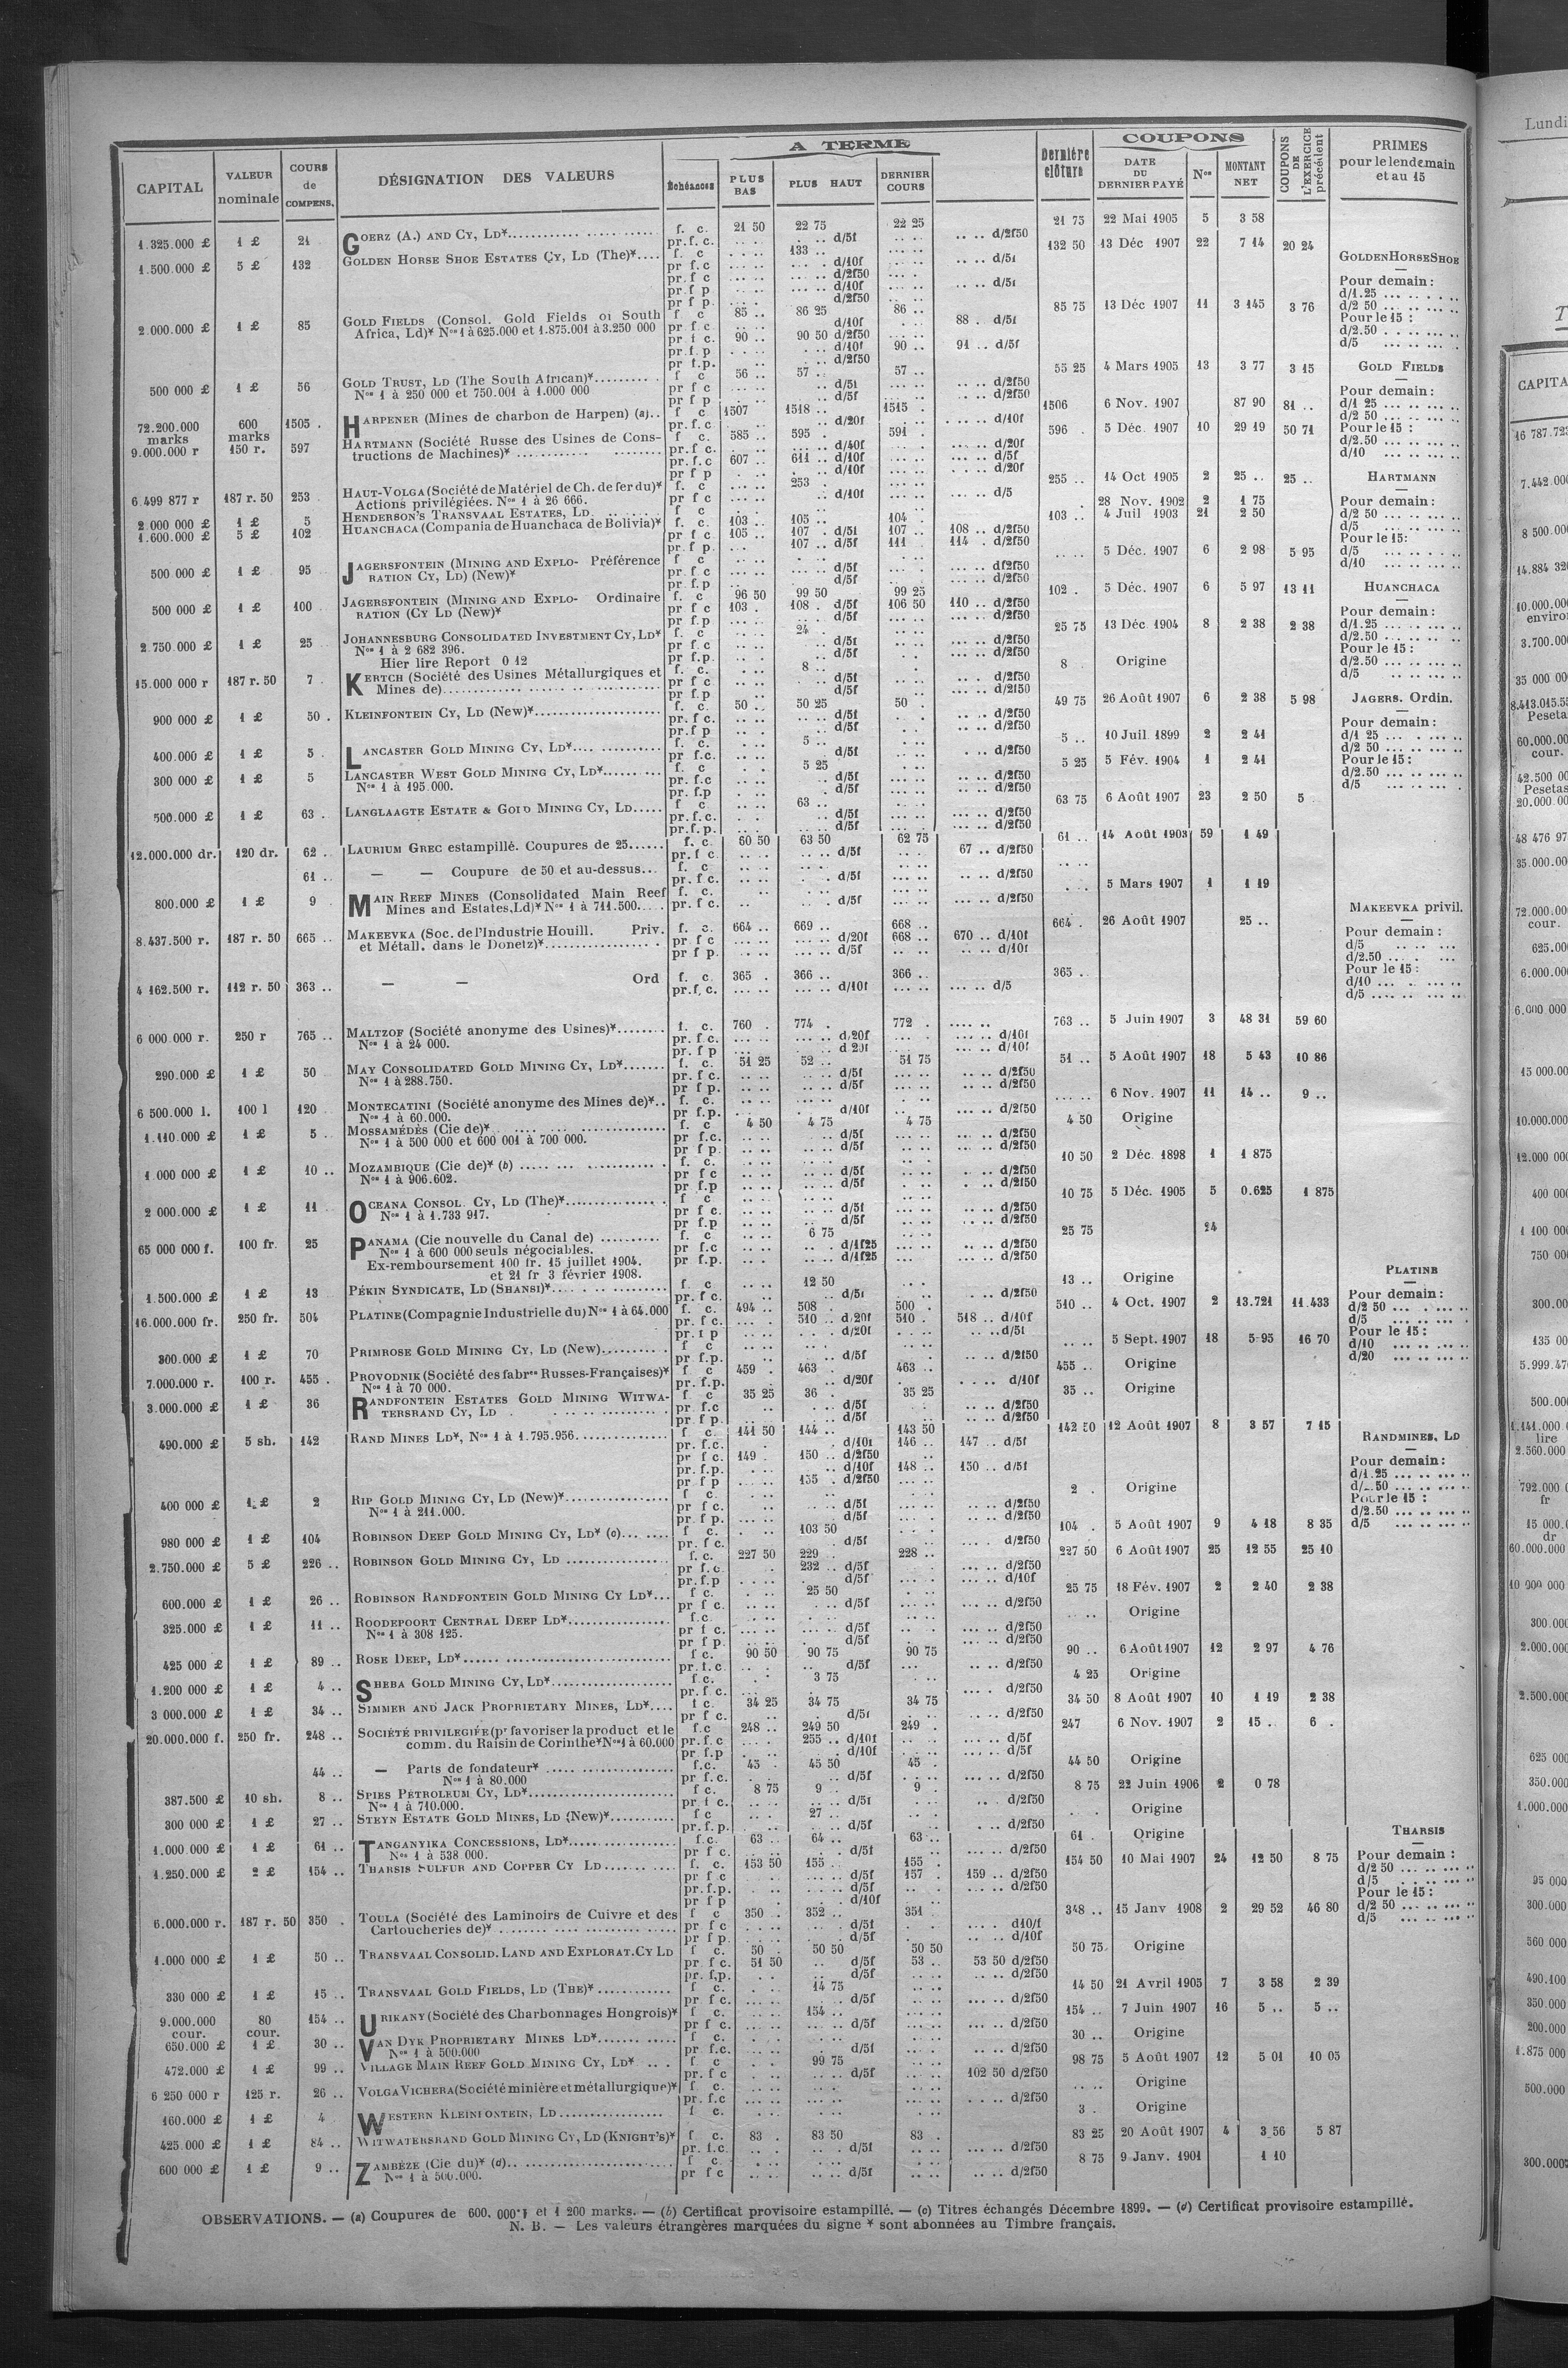 A TERME
COUPONS
CAPITAL | VALEUR nominale | COURS de COMPENS. | DÉSIGNATION DES VALEURS | Échéances | PLUS BAS | PLUS HAUT | DERNIER COURS | Dernière clôture | DATE DU DERNIER PAYÉ | Nos | MONTANT NET | COUPONS DE L'EXERCICE précédent | PRIMES pour le lendemain et au 15
1.325.000 £ | 1 £ | 21 | GOERZ (A.) AND CY, LD* | f. c. | 21 50 | 22 75 | 22 25 | 21 75 | 22 Mai 1905 | 5 | 3 58
pr. f. c. | d/5f | d/2f50
1.500.000 £ | 5 £ | 132 | GOLDEN HORSE SHOE ESTATES CY, LD (The)* | f. c | 133 | 132 50 | 13 Déc 1907 | 22 | 7 14 | 20 24
pr f c | d/10f | d/5f
pr f c | d/2f50
pr f p | d/10f | d/5f
pr f p | d/2f50
2.000.000 £ | 1 £ | 85 | GOLD FIELDS (Consol. Gold Fields of South | f c | 85 .. | 86 25 | 86 .. | 85 75 | 13 Déc 1907 | 11 | 3 145 | 3 76
Africa, Ld)* Nos 1 à 625.000 et 1.875.001 à 3.250 000 | pr f c | d/10f | 88 . d/5f
pr f c. | 90 .. | 90 50 d/2f50
pr. f. p | d/10f | 90 .. | 91 .. d/5f
pr f.p. | d/2f50
500 000 £ | 1 £ | 56 | GOLD TRUST, LD (The South African)* | f c | 56 .. | 57 .. | 57 .. | 55 25 | 4 Mars 1905 | 13 | 3 77 | 3 15
Nos 1 à 250 000 et 750.001 à 1.000 000 | pr f c | d/5f | d/2f50
pr f p | d/5f | d/2f50
72.200.000 marks | 600 marks | 1505 . | HARPENER (Mines de charbon de Harpen) (a) | f c | 1507 | 1518 .. | 1515 . | 1506 | 6 Nov. 1907 | 87 90 | 81 ..
pr. f. c | d/20f | d/10f
9.000.000 r | 150 r. | 597 | HARTMANN (Société Russe des Usines de Cons- | f c. | 585 .. | 595 . | 591 . | 596 . | 5 Déc. 1907 | 10 | 29 19 | 50 71
tructions de Machines)* | pr. f c. | d/40f | d/20f
pr. f. c | 607 .. | 611 .. d/10f | d/5f
pr f p | d/10f | d/20f
6 499 877 r | 187 r. 50 | 253 | HAUT-VOLGA (Société de Matériel de Ch. de fer du)* | f. c | 253 . | 255 .. | 14 Oct 1905 | 2 | 25 .. | 25 ..
Actions privilégiées. Nos 1 à 26 666. | pr f c | d/10f | d/5
2.000 000 £ | 1 £ | 5 | HENDERSON'S TRANSVAAL ESTATES, LD. | f c | 28 Nov. 1902 | 2 | 1 75
1.600.000 £ | 5 £ | 102 | HUANCHACA (Compania de Huanchaca de Bolivia)* | f. c. | 103 .. | 105 .. | 104 . | 103 .. | 4 Juil 1903 | 21 | 2 50
pr f c | 105 .. | 107 . d/5f | 107 .. | 108 .. d/2f50
pr. f p. | 107 .. d/5f | 111 .. | 114 . d/2f50
500 000 £ | 1 £ | 95 | JAGERSFONTEIN (MINING AND EXPLO- Préférence | f c | 5 Déc. 1907 | 6 | 2 98 | 5 95
RATION CY, LD) (New)* | pr. f c | d/5f | d/2f50
pr. f.p | d/5f | d/2f50
500 000 £ | 1 £ | 100 | JAGERSFONTEIN (MINING AND EXPLO- Ordinaire | f. c | 96 50 | 99 50 | 99 25 | 102 . | 5 Déc. 1907 | 6 | 5 97 | 13 11
RATION (CY LD (New)* | pr f c | 103 . | 108 . d/5f | 106 50 | 110 .. d/2f50
pr f.p | d/5f | d/2f50
2.750 000 £ | 1 £ | 25 | JOHANNESBURG CONSOLIDATED INVESTMENT CY, LD* | f. c | 24 . | 25 75 | 13 Déc. 1904 | 8 | 2 38 | 2 38
Nos 1 à 2 682 396. | pr f c | d/5f | d/2f50
Hier lire Report 0 12 | pr f.p. | d/5f | d/2f50
15.000 000 r | 187 r. 50 | 7 | KERTCH (Société des Usines Métallurgiques et | f. c. | 8 .. | 8 . | Origine
Mines de) | pr f c | d/5f | d/2f50
pr f.p | d/5f | d/2f50
900 000 £ | 1 £ | 50 . | KLEINFONTEIN CY, LD (New)* | f. c. | 50 .. | 50 25 | 50 . | 49 75 | 26 Août 1907 | 6 | 2 38 | 5 98
pr. f c. | d/5f | d/2f50
pr. f p | d/5f | d/2f50
400.000 £ | 1 £ | 5 . | LANCASTER GOLD MINING CY, LD* | f. c. | 5 .. | 5 .. | 10 Juil 1899 | 2 | 2 41
pr f.c. | d/5f | d/2f50
300 000 £ | 1 £ | 5 | LANCASTER WEST GOLD MINING CY, LD* | f. c | 5 25 | 5 25 | 5 Fév. 1904 | 1 | 2 41
Nos 1 à 195.000. | pr. f.c | d/5f | d/2f50
pr. f.p | d/5f | d/2f50
500.000 £ | 1 £ | 63 . | LANGLAAGTE ESTATE & GOLD MINING CY, LD | f c | 63 .. | 63 75 | 6 Août 1907 | 23 | 2 50 | 5
pr. f. c. | d/5f | d/2f50
pr. f. p. | d/5f | d/2f50
12.000.000 dr. | 120 dr. | 62 . | LAURIUM GREC estampillé. Coupures de 25 | f. c. | 60 50 | 63 50 | 62 75 | 61 .. | 14 Août 1903 | 59 | 1 49
pr. f c. | d/5f | 67 .. d/2f50
61 .. | — — Coupure de 50 et au-dessus | f. c
pr. f c. | d/5f | d/2f50
800.000 £ | 1 £ | 9 | MAIN REEF MINES (Consolidated Main Reef | f. c. | 5 Mars 1907 | 1 | 1 19
Mines and Estates, Ld)* Nos 1 à 711.500 | pr. f c. | d/5f | d/2f50
8.437.500 r. | 187 r. 50 | 665 .. | MAKEEVKA (Soc. de l'Industrie Houill. Priv. | f. c. | 664 .. | 669 .. | 668 .. | 664 . | 26 Août 1907 | 25 ..
et Métall. dans le Donetz)* | pr. f c | d/20f | 668 .. | 670 .. d/10f
pr f p. | d/5f | d/10f
4 162.500 r. | 112 r. 50 | 363 .. | — — Ord | f. c. | 365 . | 366 .. | 366 .. | 365 ..
pr. f. c. | d/10f | d/5
6 000 000 r. | 250 r | 765 .. | MALTZOF (Société anonyme des Usines)* | f. c. | 760 . | 774 . | 772 . | 763 .. | 5 Juin 1907 | 3 | 48 31 | 59 60
Nos 1 à 24 000. | pr. f.c. | d/20f | d/10f
pr. f p | d 20f | d/10f
290.000 £ | 1 £ | 50 | MAY CONSOLIDATED GOLD MINING CY, LD* | f. c. | 51 25 | 52 .. | 51 75 | 51 .. | 5 Août 1907 | 18 | 5 43 | 10 86
Nos 1 à 288.750. | pr. f c. | d/5f | d/2f50
pr f p. | d/5f | d/2f50
6 500.000 l. | 100 l | 120 | MONTECATINI (Société anonyme des Mines de)* | f. c. | 6 Nov. 1907 | 11 | 14 .. | 9 ..
Nos 1 à 60.000. | pr f.p. | d/10f | d/2f50
1.110.000 £ | 1 £ | 5 . | MOSSAMÉDÈS (Cie de)* | f. c | 4 50 | 4 75 | 4 75 | 4 50 | Origine
Nos 1 à 500 000 et 600 001 à 700 000. | pr f.c. | d/5f | d/2f50
pr f p. | d/5f | d/2f50
1.000 000 £ | 1 £ | 10 .. | MOZAMBIQUE (Cie de)* (b) | f. c. | 10 50 | 2 Déc. 1898 | 1 | 1 875
Nos 1 à 906.602. | pr f c | d/5f | d/2f50
pr f.p | d/5f | d/2f50
2 000.000 £ | 1 £ | 11 | OCEANA CONSOL. CY, LD (The)* | f c | 10 75 | 5 Déc. 1905 | 5 | 0.625 | 1 875
Nos 1 à 1.733 917. | pr f c. | d/5f | d/2f50
pr f.p | d/5f | d/2f50
65 000 000 f. | 100 fr. | 25 | PANAMA (Cie nouvelle du Canal de) | f. c | 6 75 | 25 75 | 24
Nos 1 à 600 000 seuls négociables. | pr f.c | d/1f25 | d/2f50
Ex-remboursement 100 fr. 15 juillet 1904. | pr f.p. | d/1f25 | d/2f50
et 21 fr 3 février 1908.
1.500.000 £ | 1 £ | 13 | PÉKIN SYNDICATE, LD (SHANSI)* | f c | 12 50 | 13 .. | Origine
pr. f c. | d/5f | d/2f50
16.000.000 fr. | 250 fr. | 504 | PLATINE (Compagnie Industrielle du) Nos 1 à 64.000 | f. c. | 494 .. | 508 . | 500 . | 510 .. | 4 Oct. 1907 | 2 | 13.721 | 11.433
pr. f c. | 510 .. d/20f | 510 . | 518 .. d/10f
pr. f p | d/20f | d/5f
300.000 £ | 1 £ | 70 | PRIMROSE GOLD MINING CY, LD (New) | f c | 5 Sept. 1907 | 18 | 5 95 | 16 70
pr f.p. | d/5f | d/2f50
7.000.000 r. | 100 r. | 455 . | PROVODNIK (Société des fabres Russes-Françaises)* | f c | 459 . | 463 . | 463 .. | 455 .. | Origine
Nos 1 à 70 000. | pr. f.p. | d/20f | d/10f
3.000.000 £ | 1 £ | 36 | RANDFONTEIN ESTATES GOLD MINING WITWA- | f c | 35 25 | 36 . | 35 25 | 35 .. | Origine
TERSRAND CY, LD | pr. f.c | d/5f | d/2f50
pr f p. | d/5f | d/2f50
490.000 £ | 5 sh. | 142 | RAND MINES LD*, Nos 1 à 1.795.956 | f c. | 141 50 | 144 .. | 143 50 | 142 50 | 12 Août 1907 | 8 | 3 57 | 7 15
pr. f.c. | d/10f | 146 .. | 147 .. d/5f
pr f c. | 149 . | 150 .. d/2f50
pr. f.p. | d/10f | 148 .. | 150 .. d/5f
pr f p | 155 . d/2f50
400 000 £ | 1 £ | 2 | RIP GOLD MINING CY, LD (New)* | f c. | 2 . | Origine
Nos 1 à 211.000. | pr f c. | d/5f | d/2f50
pr f p. | d/5f | d/2f50
980 000 £ | 1 £ | 104 | ROBINSON DEEP GOLD MINING CY, LD* (c) | f c. | 103 50 | 104 . | 5 Août 1907 | 9 | 4 18 | 8 35
pr. f c. | d/5f | d/2f50
2.750.000 £ | 5 £ | 226 .. | ROBINSON GOLD MINING CY, LD | f. c. | 227 50 | 229 .. | 228 .. | 227 50 | 6 Août 1907 | 25 | 12 55 | 25 10
pr f.c. | 232 .. d/5f | d/2f50
pr. f.p | d/5f | d/10f
600.000 £ | 1 £ | 26 .. | ROBINSON RANDFONTEIN GOLD MINING CY LD* | f c. | 25 50 | 25 75 | 18 Fév. 1907 | 2 | 2 40 | 2 38
pr f c. | d/5f | d/2f50
325.000 £ | 1 £ | 11 .. | ROODEPOORT CENTRAL DEEP LD* | f.c. | Origine
Nos 1 à 308 125. | pr f c. | d/5f | d/2f50
pr f p. | d/5f | d/2f50
425 000 £ | 1 £ | 89 .. | ROSE DEEP, LD* | f c. | 90 50 | 90 75 | 90 75 | 90 .. | 6 Août 1907 | 12 | 2 97 | 4 76
pr. f. c. | d/5f | d/2f50
1.200 000 £ | 1 £ | 4 .. | SHEBA GOLD MINING CY, LD* | f.c. | 3 75 | 4 25 | Origine
pr. f c. | d/2f50
3 000.000 £ | 1 £ | 34 .. | SIMMER AND JACK PROPRIETARY MINES, LD* | f c. | 34 25 | 34 75 | 34 75 | 34 50 | 8 Août 1907 | 10 | 1 19 | 2 38
pr f c. | d/5f | d/2f50
20.000.000 f. | 250 fr. | 248 .. | SOCIÉTÉ PRIVILEGIÉE (pr favoriser la product et le | f.c | 248 .. | 249 50 | 249 . | 247 | 6 Nov. 1907 | 2 | 15 . | 6 .
comm. du Raisin de Corinthe* Nos 1 à 60.000 | pr. f. c | 255 .. d/10f | d/5f
pr. f.p | d/10f | d/5f
44 .. | — Parts de fondateur* | f.c. | 45 . | 45 50 | 45 . | 44 50 | Origine
Nos 1 à 80.000 | pr f.c. | d/5f | d/2f50
387.500 £ | 10 sh. | 8 .. | SPIES PÉTROLEUM CY, LD* | f c. | 8 75 | 9 . | 9 . | 8 75 | 22 Juin 1906 | 2 | 0 78
Nos 1 à 710.000. | pr. f c. | d/5f | d/2f50
300 000 £ | 1 £ | 27 .. | STEYN ESTATE GOLD MINES, LD (New)* | f c | 27 .. | Origine
pr. f. p. | d/5f | d/2f50
1.000.000 £ | 1 £ | 61 .. | TANGANYIKA CONCESSIONS, LD* | f.c. | 63 .. | 64 .. | 63 .. | 61 . | Origine
Nos 1 à 538 000. | pr f c. | d/5f | d/2f50
1.250.000 £ | 2 £ | 154 .. | THARSIS SULFUR AND COPPER CY LD | f. c. | 153 50 | 155 .. | 155 . | 154 50 | 10 Mai 1907 | 24 | 12 50 | 8 75
pr f c | d/5f | 157 . | 159 .. d/2f50
pr. f.p. | d/5f | d/2f50
pr f p | d/10f
6.000.000 r. | 187 r. 50 | 350 . | TOULA (Société des Laminoirs de Cuivre et des | f c | 350 .. | 352 .. | 351 | 348 .. | 15 Janv 1908 | 2 | 29 52 | 46 80
Cartoucheries de)* | pr f c | d/5f | d10/f
pr f p | d/5f | d/10f
1.000 000 £ | 1 £ | 50 .. | TRANSVAAL CONSOLID. LAND AND EXPLORAT. CY LD | f c. | 50 . | 50 50 | 50 50 | 50 75 | Origine
pr. f c. | 51 50 | d/5f | 53 .. | 53 50 d/2f50
pr. f.p. | d/5f | d/2f50
330 000 £ | 1 £ | 15 .. | TRANSVAAL GOLD FIELDS, LD (THE)* | f c. | 14 75 | 14 50 | 21 Avril 1905 | 7 | 3 58 | 2 39
pr f c. | d/5f | d/2f50
9.000.000 cour. | 80 cour. | 154 .. | URIKANY (Société des Charbonnages Hongrois)* | f c. | 154 .. | 154 .. | 7 Juin 1907 | 16 | 5 .. | 5 ..
pr f c. | d/5f | d/2f50
650.000 £ | 1 £ | 30 .. | VAN DYK PROPRIETARY MINES LD* | f c. | 30 .. | Origine
Nos 1 à 500.000 | pr f.c. | d/5f | d/2f50
472.000 £ | 1 £ | 99 .. | VILLAGE MAIN REEF GOLD MINING CY, LD* | f c | 99 75 | 98 75 | 5 Août 1907 | 12 | 5 01 | 10 05
pr. f c | d/5f | 102 50 d/2f50
6 250 000 r | 125 r. | 26 .. | VOLGA VICHERA (Société minière et métallurgique)* | f. c. | Origine
pr. f.c | d/2f50
160.000 £ | 1 £ | 4 | WESTERN KLEINFONTEIN, LD | f c. | 3 . | Origine
425.000 £ | 1 £ | 84 .. | WITWATERSRAND GOLD MINING CY, LD (KNIGHT'S)* | f c. | 83 . | 83 50 | 83 . | 83 25 | 20 Août 1907 | 4 | 3 56 | 5 87
pr. f.c. | d/5f | d/2f50
600 000 £ | 1 £ | 9 .. | ZAMBÈZE (Cie du)* (d) | f c | 8 75 | 9 Janv. 1901 | 1 10
Nos 1 à 500.000. | pr f c | d/5f | d/2f50
GOLDEN HORSE SHOE
Pour demain:
d/1.25
d/2 50
Pour le 15:
d/2.50
d/5
GOLD FIELDS
Pour demain:
d/1 25
d/2 50
Pour le 15:
d/2.50
d/10
HARTMANN
Pour demain:
d/2 50
d/5
Pour le 15:
d/5
d/10
HUANCHACA
Pour demain:
d/1.25
d/2.50
Pour le 15:
d/2.50
d/5
JAGERS. Ordin.
Pour demain:
d/1 25
d/2 50
Pour le 15:
d/2.50
d/5
MAKEEVKA privil.
Pour demain:
d/5
d/2.50
Pour le 15:
d/10
d/5
PLATINE
Pour demain:
d/2 50
d/5
Pour le 15:
d/10
d/20
RANDMINES, LD
Pour demain:
d/1.25
d/2.50
Pour le 15:
d/2.50
d/5
THARSIS
Pour demain:
d/2 50
d/5
Pour le 15:
d/2 50
d/5
OBSERVATIONS. — (a) Coupures de 600, 000 et 1 200 marks. — (b) Certificat provisoire estampillé. — (c) Titres échangés Décembre 1899. — (d) Certificat provisoire estampillé.
N. B. — Les valeurs étrangères marquées du signe * sont abonnées au Timbre français.
Lundi
CAPITA